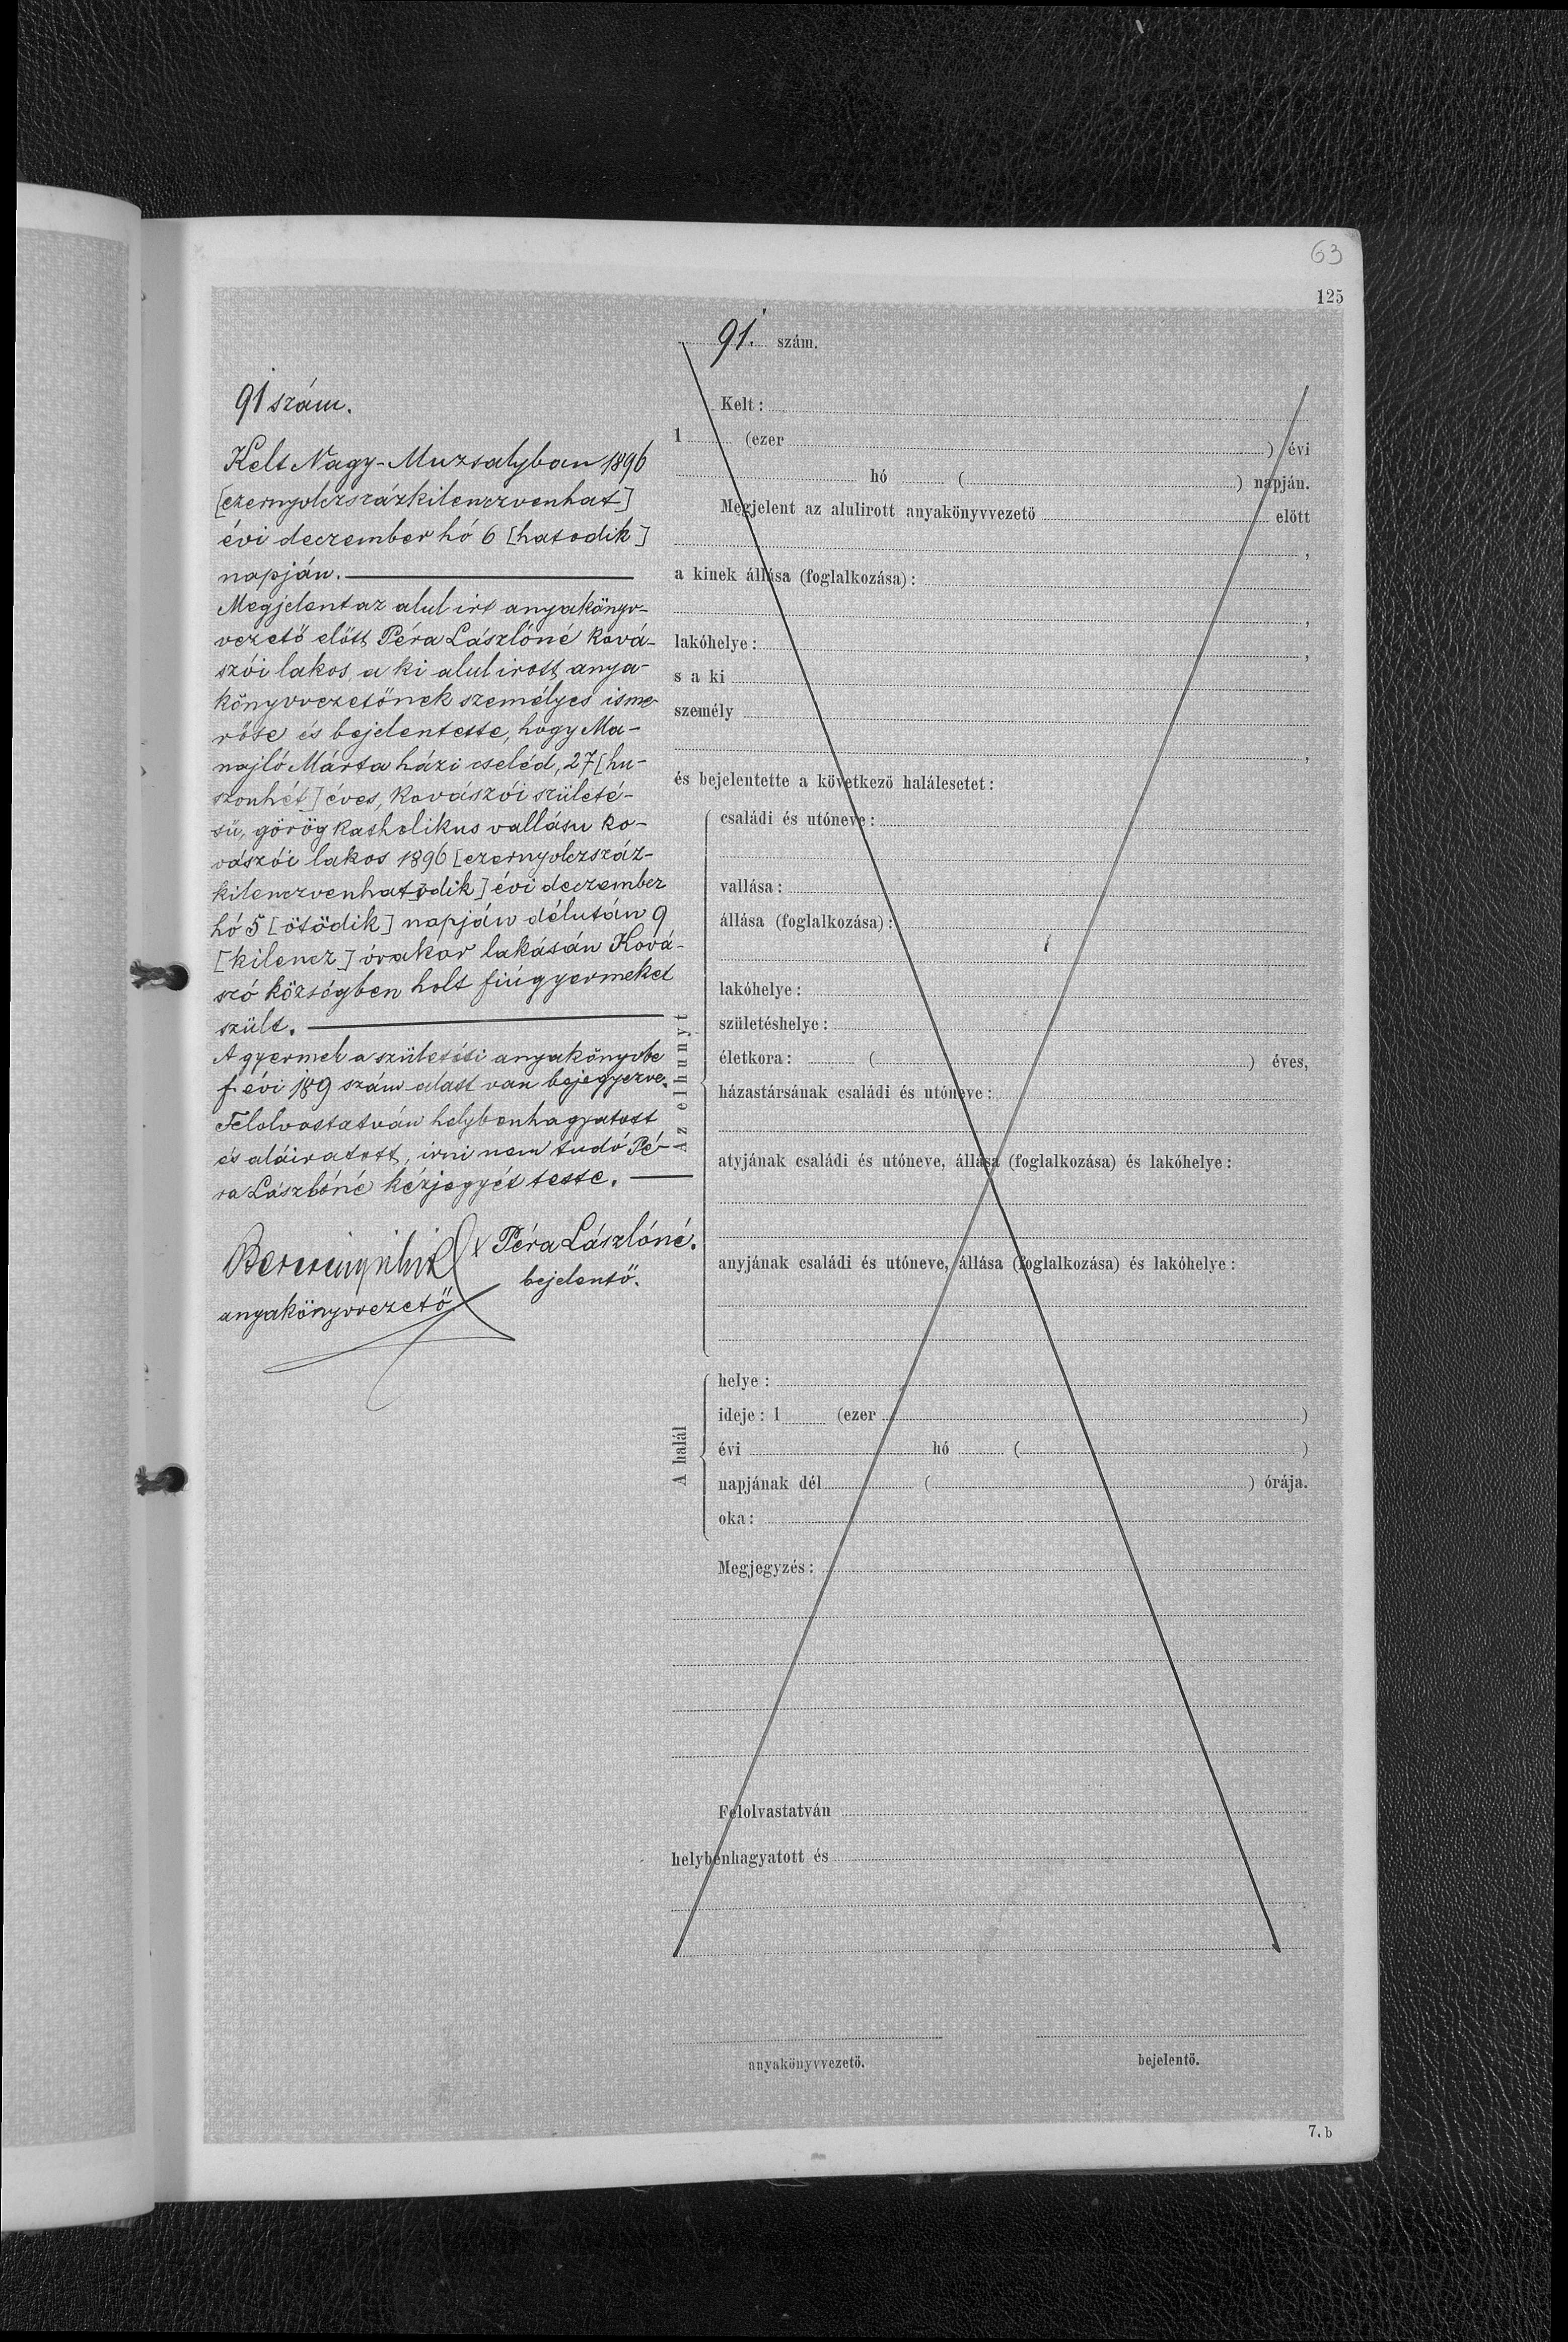 63
125
91. szám.
91 szám.
Kelt Nagy-Muzsalyban 1896
[ezernyolczszázkilenczvenhat]
évi deczember hó 6 [hatodik]
napján.
Megjelent az alul irt anyakönyv-
vezető előtt Péra Lászlóné ková-
szói lakos, a ki alul irott anya-
könyvvezetőnek személyes isme-
rőse és bejelentette, hogy Ma-
najló Márta házi cseléd, 27 [hu-
szonhét] éves, kovászói születé-
sű, görög katholikus vallásu ko-
vászói lakos 1896 [ezernyolczszáz-
kilenczvenhatodik] évi deczember
hó 5 [ötödik] napján délután 9
[kilencz] órakor lakásán Ková-
szó községben holt fiúgyermeket
szült.
A gyermek a születési anyakönyvbe
f. évi 189 szám alatt van bejegyezve.
Felolvastatván helybenhagyatott
és aláiratott, irni nem tudó Pé-
ra Lászlóné kézjegyét tette.
x Péra Lászlóné.
bejelentő.
anyakönyvvezető
Kelt:
1 (ezer ) évi
hó ( ) napján.
Megjelent az alulirott anyakönyvvezető előtt
,
a kinek állása (foglalkozása):
,
lakóhelye: ,
s a ki
személy
,
és bejelentette a következő halálesetet:
Az elhunyt
családi és utóneve:
vallása:
állása (foglalkozása):
lakóhelye:
születéshelye:
életkora: ( ) éves,
házastársának családi és utóneve:
atyjának családi és utóneve, állása (foglalkozása) és lakóhelye:
anyjának családi és utóneve, állása (foglalkozása) és lakóhelye:
A halál
helye:
ideje: 1 (ezer )
évi hó ( )
napjának dél ( ) órája.
oka:
Megjegyzés:
Felolvastatván
helybenhagyatott és
anyakönyvvezető.
bejelentő.
7. b